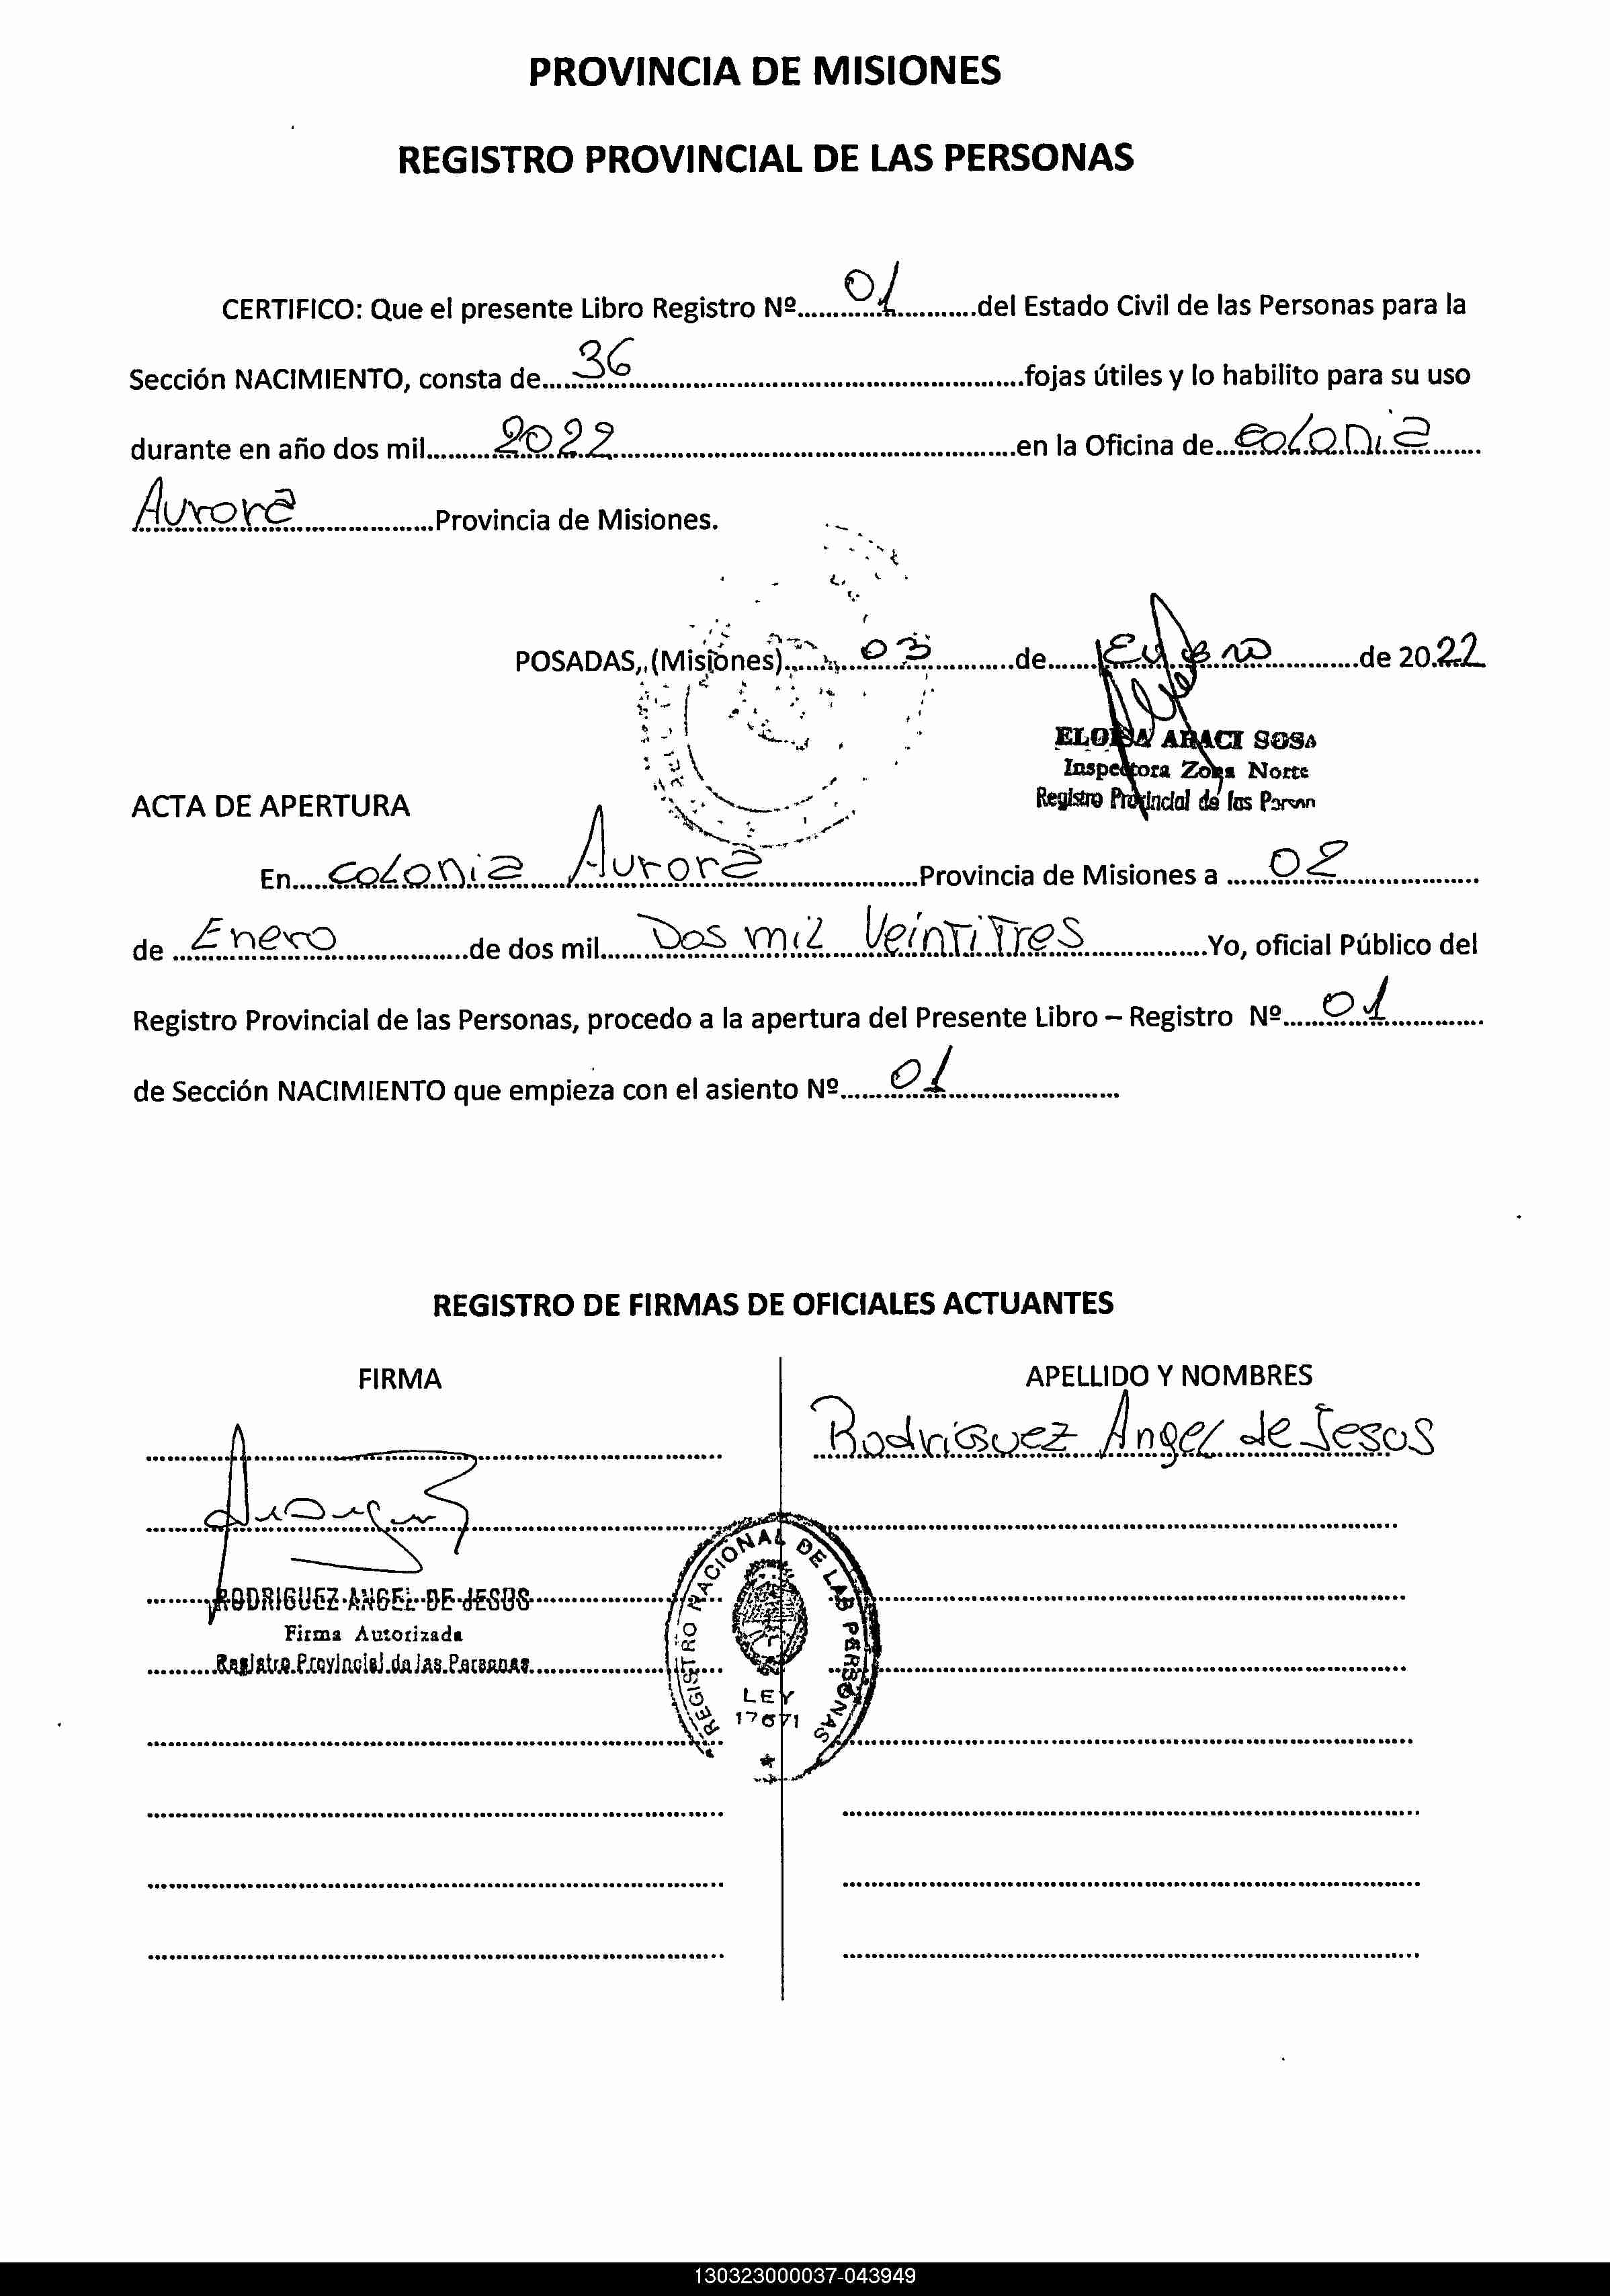 PROVINCIA DE MISIONES
REGISTRO PROVINCIAL DE LAS PERSONAS
CERTIFICO: Que el presente Libro Registro Nº......01......del Estado Civil de las Personas para la
Sección NACIMIENTO, consta de......36......fojas útiles y lo habilito para su uso
durante en año dos mil......2022......en la Oficina de...colonia...
Aurora......Provincia de Misiones.
POSADAS,,(Misiones)......03......de......Enero......de 20.22
ELOISA ARACI SOSA
Inspectora Zona Norte
Registro Provincial de las Person
ACTA DE APERTURA
En...colonia Aurora......Provincia de Misiones a ...02......
de ...Enero......de dos mil...Dos mil Veintitres......Yo, oficial Público del
Registro Provincial de las Personas, procedo a la apertura del Presente Libro – Registro Nº...01......
de Sección NACIMIENTO que empieza con el asiento Nº...01......
REGISTRO DE FIRMAS DE OFICIALES ACTUANTES
FIRMA
APELLIDO Y NOMBRES
Rodriguez Angel de Jesus
RODRIGUEZ ANGEL DE JESUS
Firma Autorizada
Registro Provincial de las Personas
REGISTRO NACIONAL DE LAS PERSONAS
LEY
17671
130323000037-043949